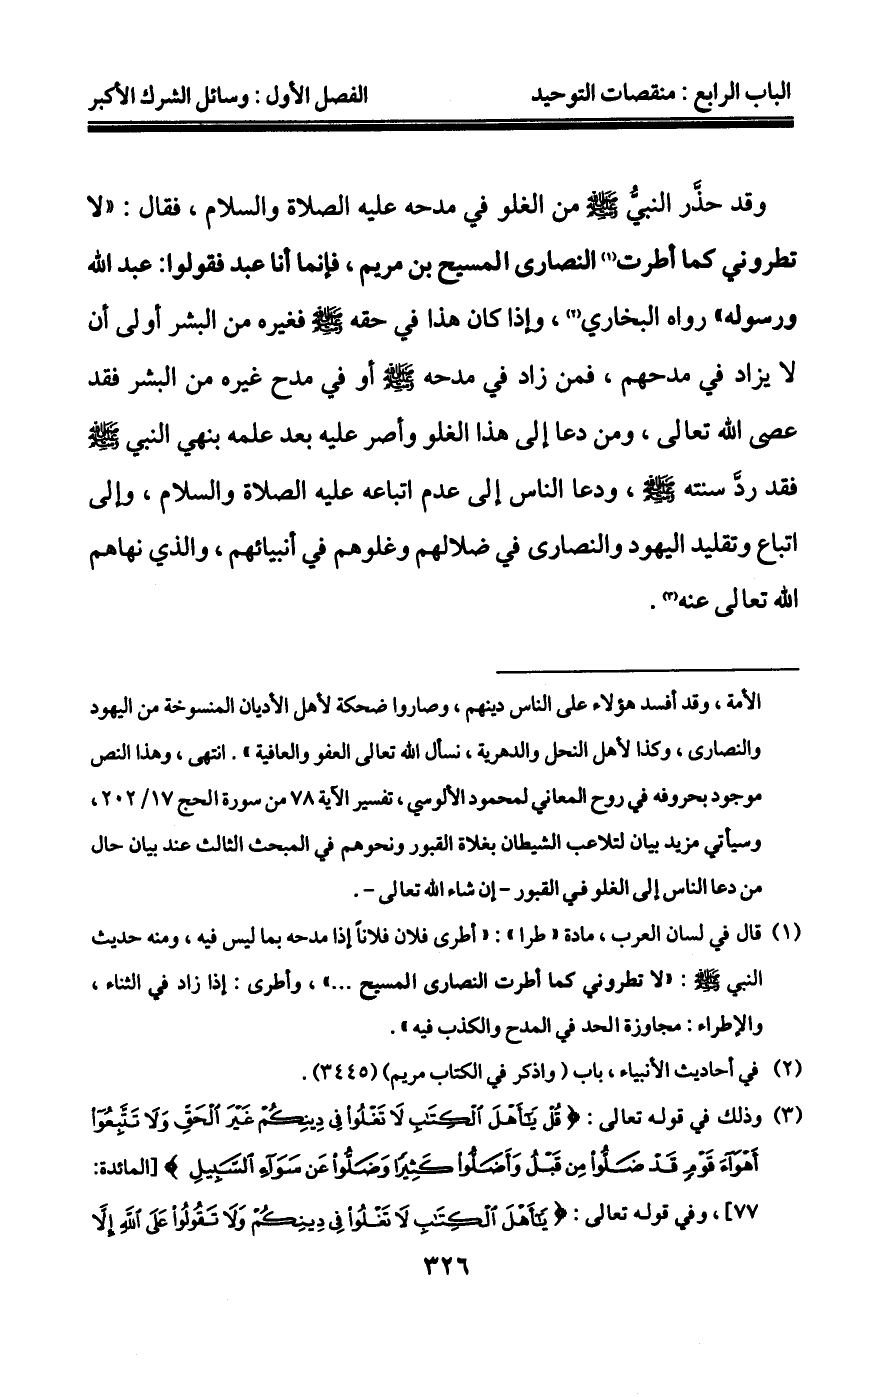 الباب الرابع : منقصات التوحيد الفصل الأول : وسائل الشرك الأكبر
وقد حذَّر النبيُّ ﷺ من الغلو في مدحه عليه الصلاة والسلام ، فقال : «لا
تطروني كما أطرت(١) النصارى المسيح بن مريم ، فإنما أنا عبد فقولوا: عبد الله
ورسوله» رواه البخاري(٢) ، وإذا كان هذا في حقه ﷺ فغيره من البشر أولى أن
لا يزاد في مدحهم ، فمن زاد في مدحه ﷺ أو في مدح غيره من البشر فقد
عصى الله تعالى ، ومن دعا إلى هذا الغلو وأصر عليه بعد علمه بنهي النبي ﷺ
فقد ردَّ سنته ﷺ ، ودعا الناس إلى عدم اتباعه عليه الصلاة والسلام ، وإلى
اتباع وتقليد اليهود والنصارى في ضلالهم وغلوهم في أنبيائهم ، والذي نهاهم
الله تعالى عنه(٣) .
الأمة ، وقد أفسد هؤلاء على الناس دينهم ، وصاروا ضحكة لأهل الأديان المنسوخة من اليهود
والنصارى ، وكذا لأهل النحل والدهرية ، نسأل الله تعالى العفو والعافية » . انتهى ، وهذا النص
موجود بحروفه في روح المعاني لمحمود الألوسي ، تفسير الآية ٧٨ من سورة الحج ١٧/ ٢٠٢ ،
وسيأتي مزيد بيان لتلاعب الشيطان بغلاة القبور ونحوهم في المبحث الثالث عند بيان حال
من دعا الناس إلى الغلو في القبور -إن شاء الله تعالى - .
(١) قال في لسان العرب ، مادة « طرا » : « أطرى فلان فلاناً إذا مدحه بما ليس فيه ، ومنه حديث
النبي ﷺ : «لا تطروني كما أطرت النصارى المسيح ...» ، وأطرى : إذا زاد في الثناء ،
والإطراء : مجاوزة الحد في المدح والكذب فيه » .
(٢) في أحاديث الأنبياء ، باب ( واذكر في الكتاب مريم) (٣٤٤٥) .
(٣) وذلك في قوله تعالى : ﴿ قُلْ يَٰٓأَهْلَ ٱلْكِتَٰبِ لَا تَغْلُوا۟ فِى دِينِكُمْ غَيْرَ ٱلْحَقِّ وَلَا تَتَّبِعُوٓا۟
أَهْوَآءَ قَوْمٍ قَدْ ضَلُّوا۟ مِن قَبْلُ وَأَضَلُّوا۟ كَثِيرًا وَضَلُّوا۟ عَن سَوَآءِ ٱلسَّبِيلِ ﴾ [المائدة:
٧٧] ، وفي قوله تعالى : ﴿ يَٰٓأَهْلَ ٱلْكِتَٰبِ لَا تَغْلُوا۟ فِى دِينِكُمْ وَلَا تَقُولُوا۟ عَلَى ٱللَّهِ إِلَّا
٣٢٦